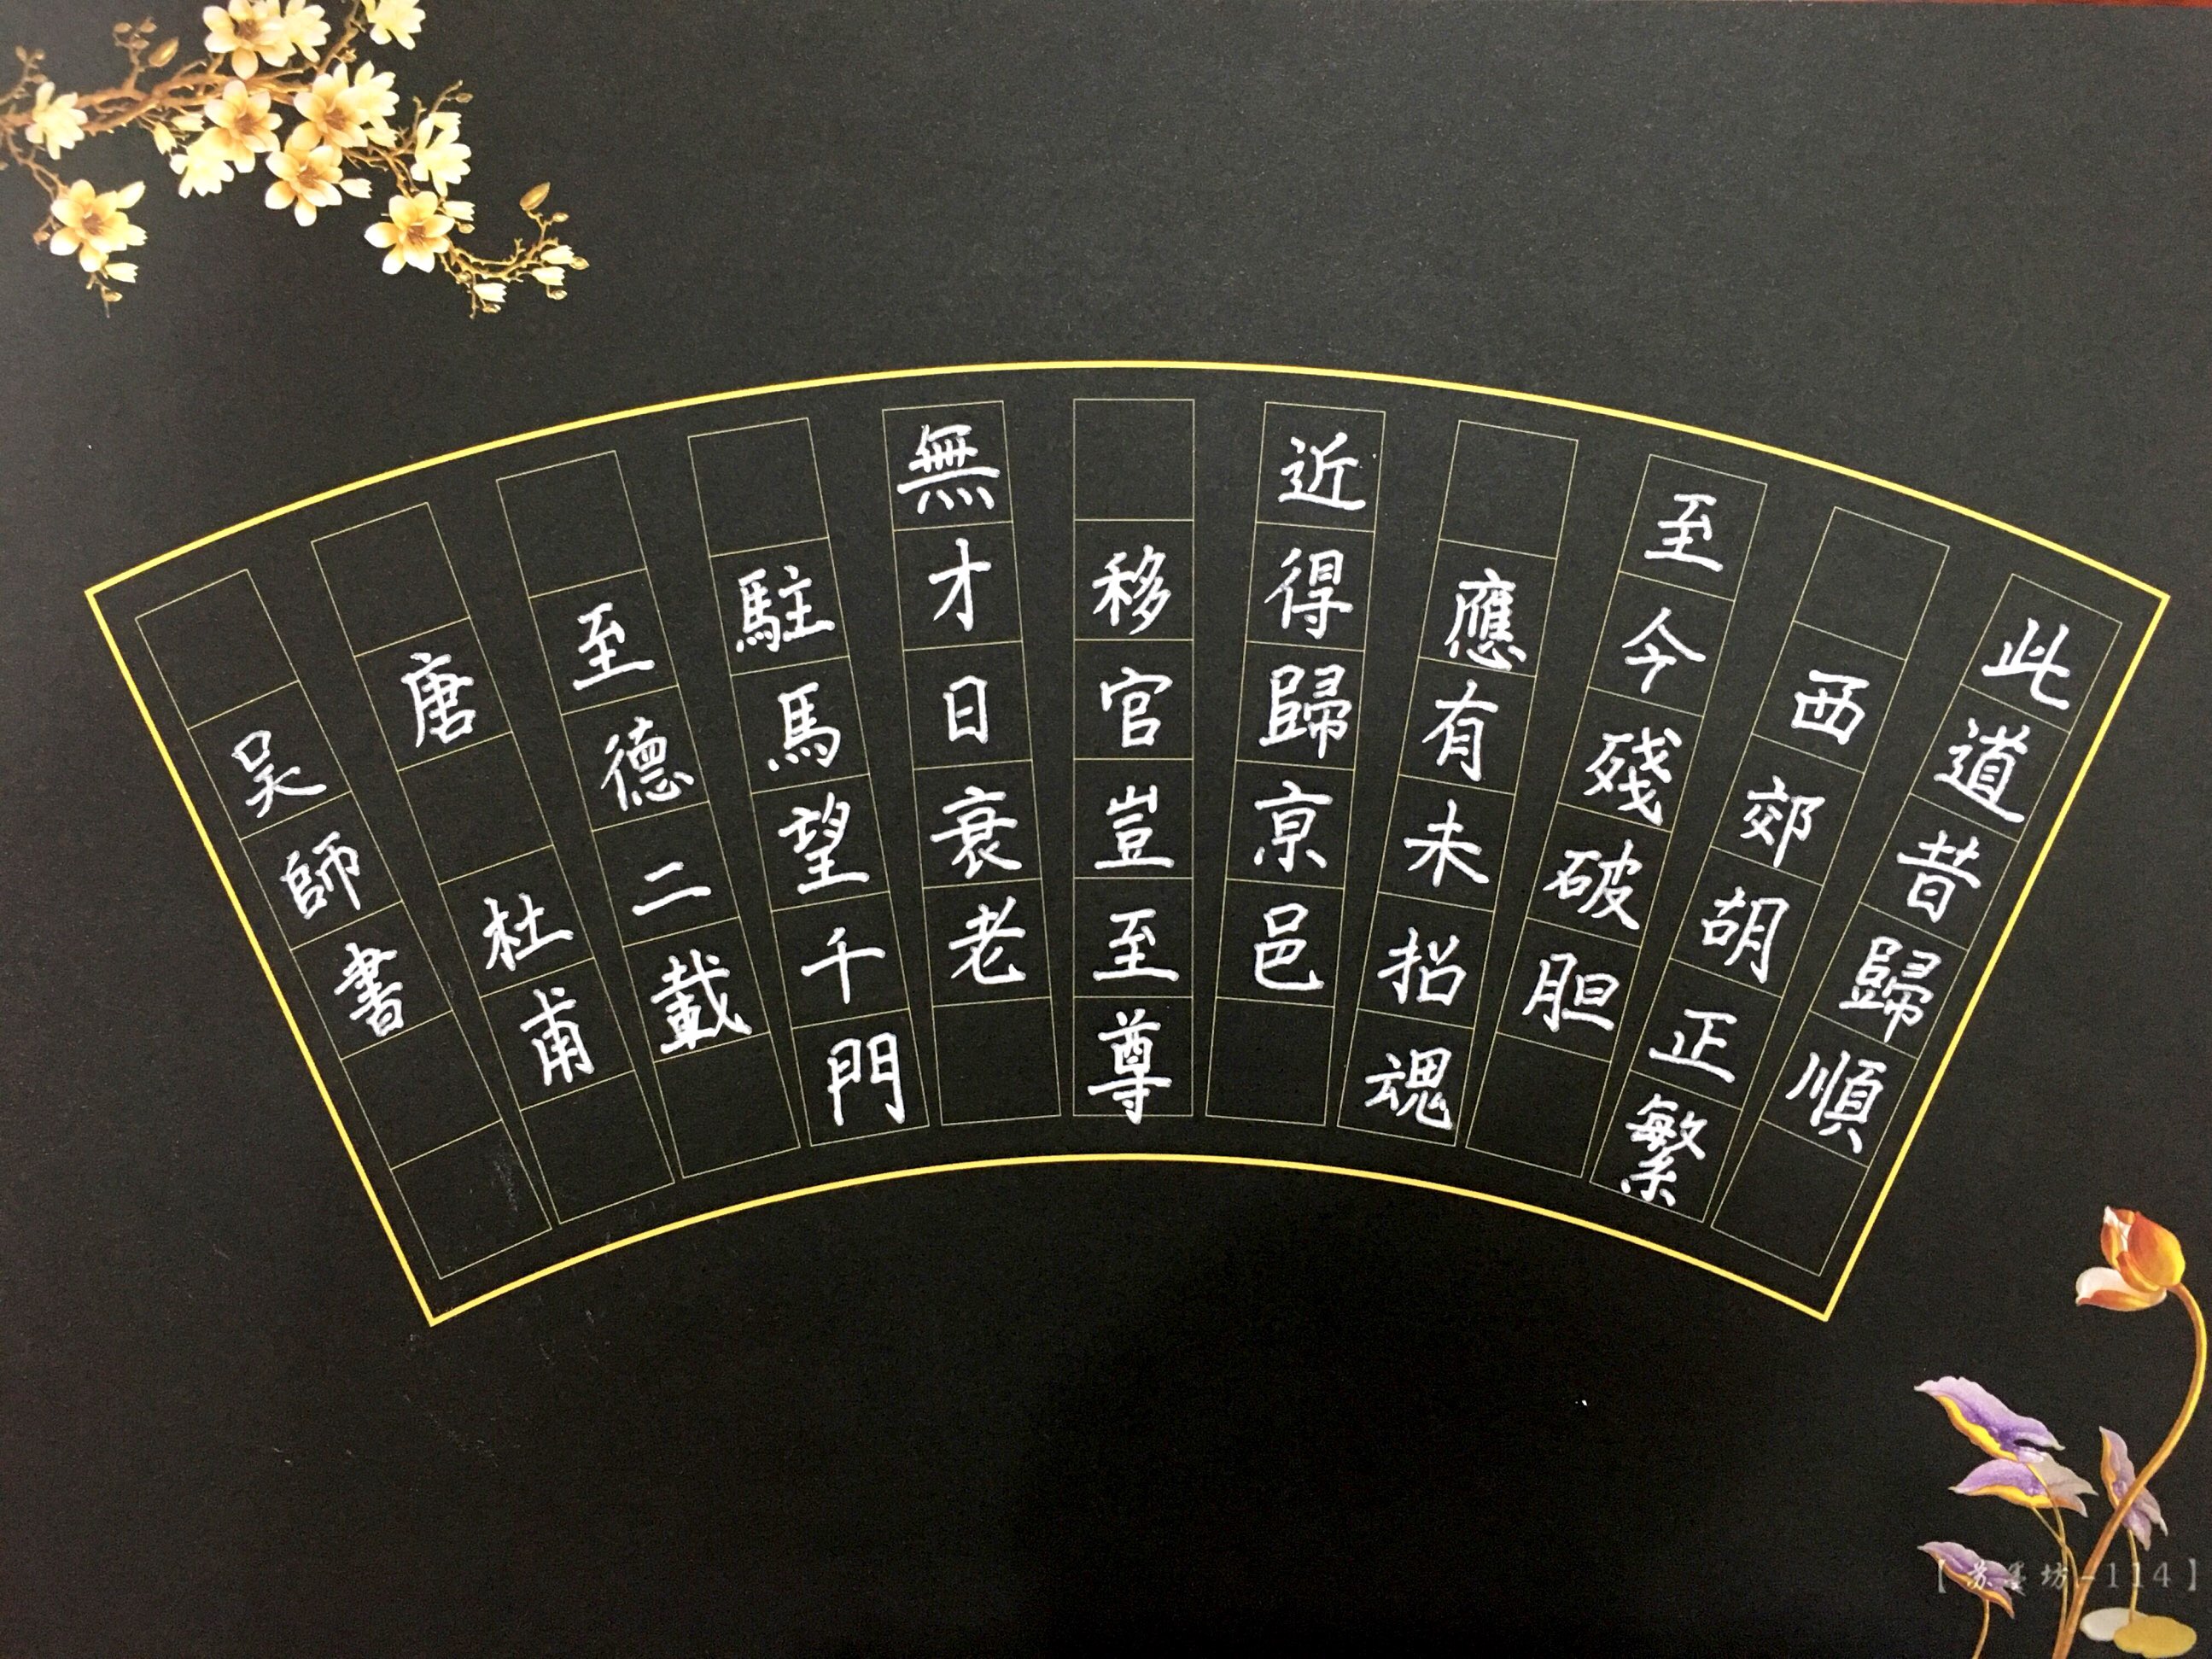 此道昔歸順
西郊胡正繁
至今殘破胆
應有未招魂
近得歸京邑
移官豈至尊
無才日衰老
駐馬望千門
至德二載
唐 杜甫
吳師書
【苏墨坊-114】